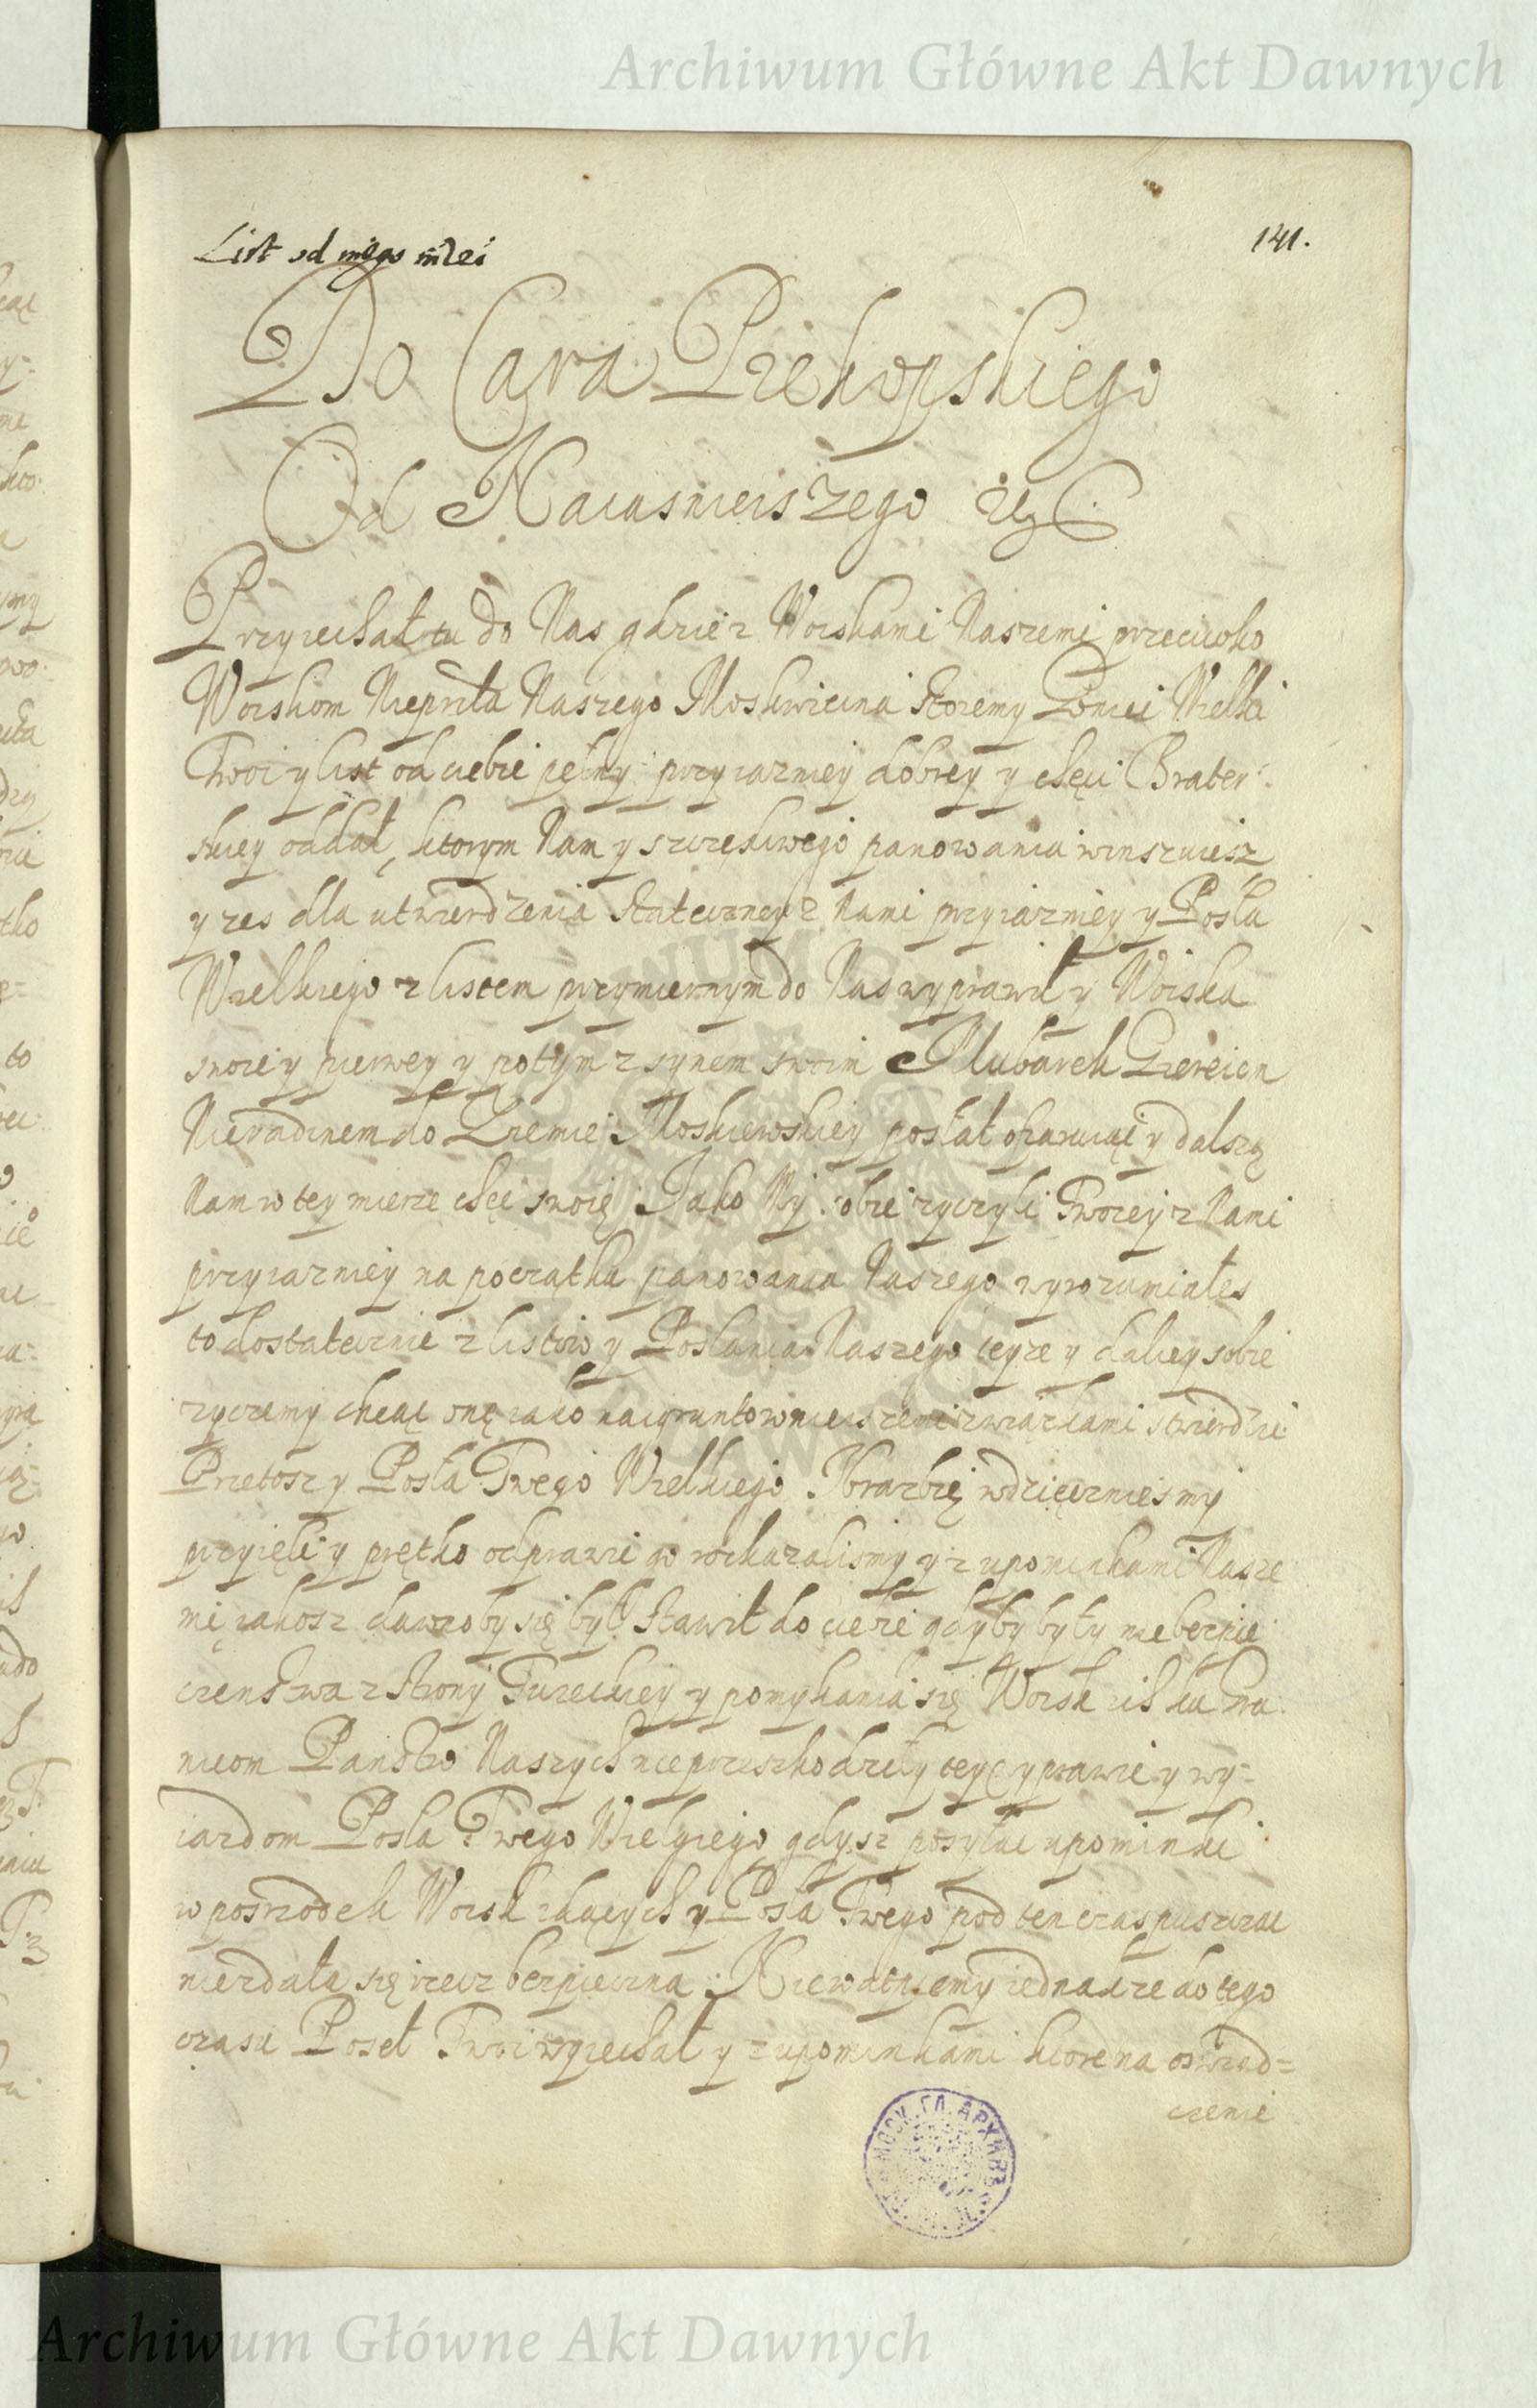 Archiwum Główne Akt Dawnych
141.
List od
Do Cara Przekopskiego
Od Naiasnieiszego etc.
Przyiechał tu do Nas gdzie z Woiskami Naszemi przeciwko
Woiskom Nieprłla Naszego Moskwicina stoiemy Goniec Wielki
Twoi y list od ciebie pełny przyiazniey dobrey y chęci Brater:
skiey oddał, ktorym Nam y szczęsliwego panowania winszuiesz
y zes dla utwierdzenia statczney z Nami przyiazniey y Posła
Wielkiego z listem przymiernym do Nas wyprawił y Woiska
swoie y pierwey y potym z synem swoim Mubarek Giereiem
Nieradinem do Ziemie Moskiewskiey posłał ofiaruiąc y dalszą
Nam w tey mierze chęć swoię. Jako My sobie zyczyli Twoiey z Nami
przyiazniey na początku panowania Naszego wyrozumiałes
to dostatecznie z listow y Posłania Naszego teyze y daliey sobie
zyczemy chcąc onę iako naigruntownieiszemi związkami stwierdzic
Przetosz y Posła Twego Wielkiego wdzięczniesmy
przyięli y prętko odprawic go rozkazalismy y z upominkami Nasze
mi iakosz dawno by się był stawił do ciebie gdyby były niebezpie:
czenstwa z strony Tureckiey y pomykania się Woisk ich ku Gra:
nicom Panstw Naszych nie przeszkodziły teyc yprawie y wy=
iazdom Posła Twego Wielgiego gdysz posyłac upominki
w posrzodek Woisk y Posła Twego pod ten czas puszczac
niezdała się rzecz bezpieczna. Niewątpiemy iednak ze do tego
czasu Poseł Twoi wyiechał y z upominkami ktore na oswiad=
czenie
МОСК. ГЛ. АРХИВЪ
Archiwum Główne Akt Dawnych